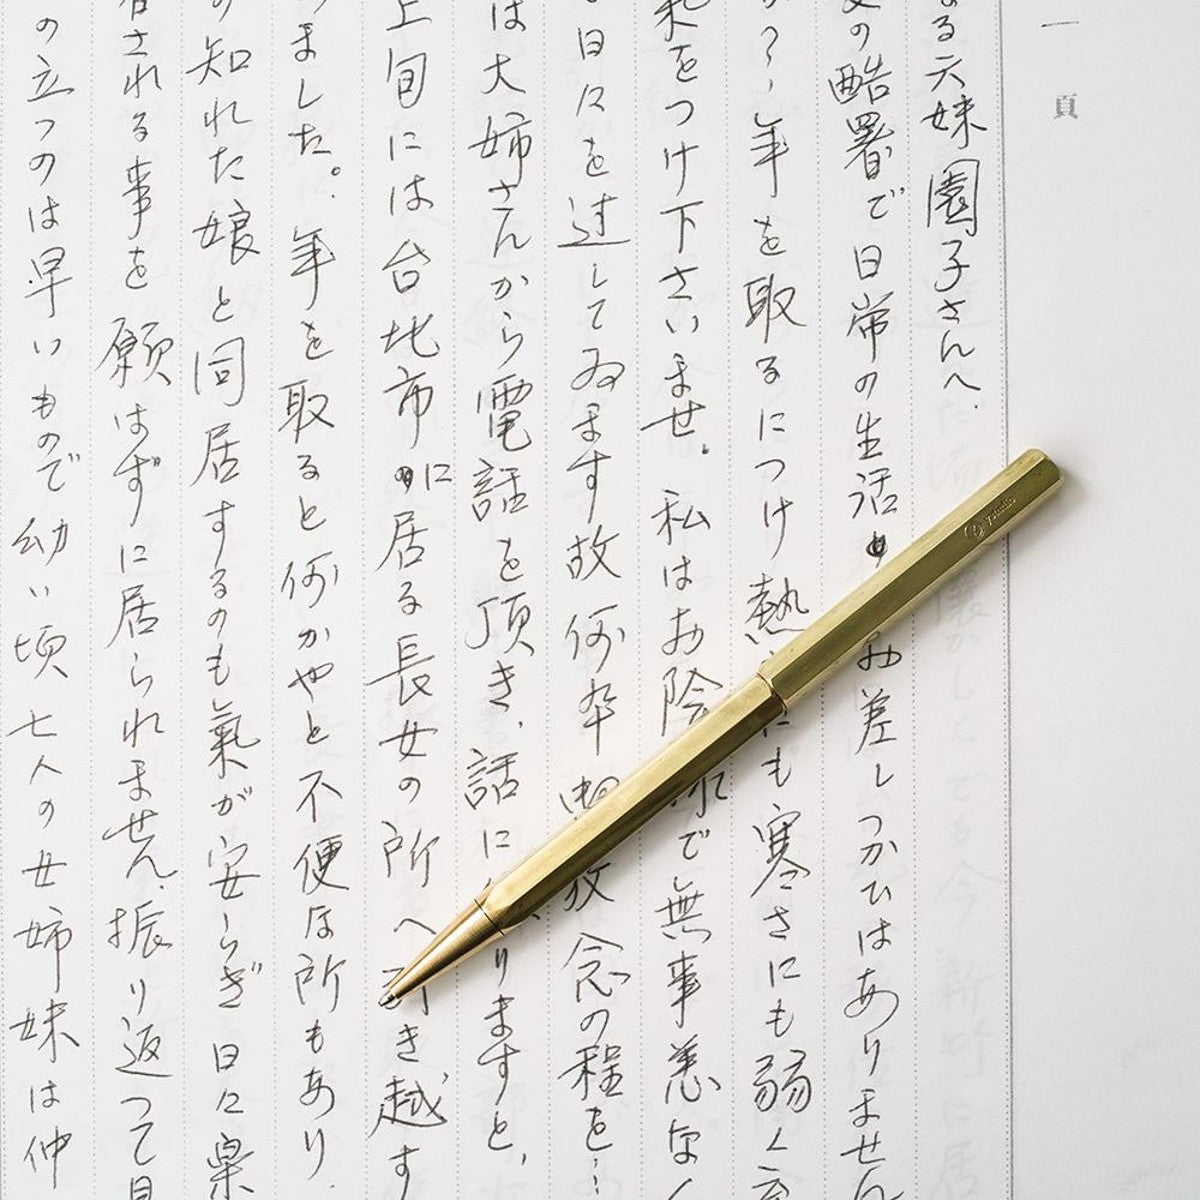 一頁
る六妹園子さんへ.
の酷暑で日常の生活 お差しつかひはありません
年を取るにつけ熱 にも寒さにも弱く
をつけ下さいませ。私はお陰 で無事恙なく
日々を過してゐます故何卒 放念の程を…
は大姉さんから電話を頂き、話に りますと,
上旬には台北市に居る長女の所へ き越す
ました。年を取ると何かやと不便な所もあり、
知れた娘と同居するのも氣が安らぎ日々楽
される事を願はずに居られません.振り返って見
の立つのは早いもので幼い頃七人の女姉妹は仲
ystudio